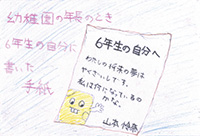 幼稚園の年長のとき
6年生の自分に
書いた
手紙
6年生の自分へ
わたしの将来の夢は
やさいしです。
私は何になっているの
かな。
山本